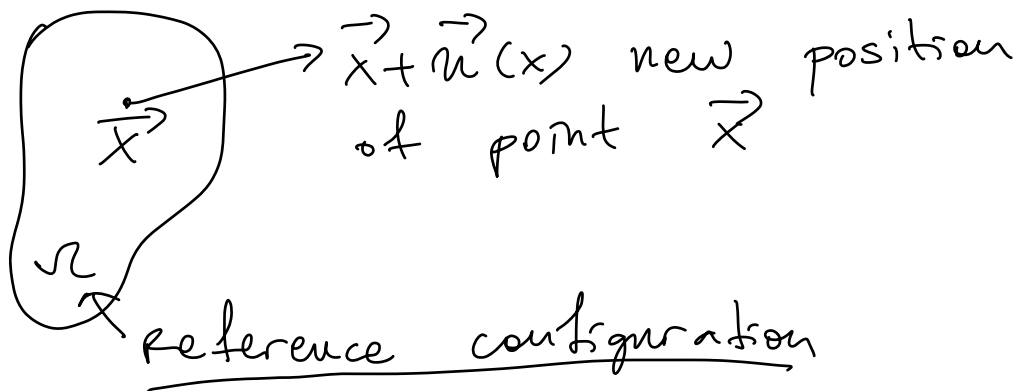 $\vec{x} + \vec{u}(x)$ new position
of point $\vec{x}$
$\vec{x}$
Ω
Reference configuration